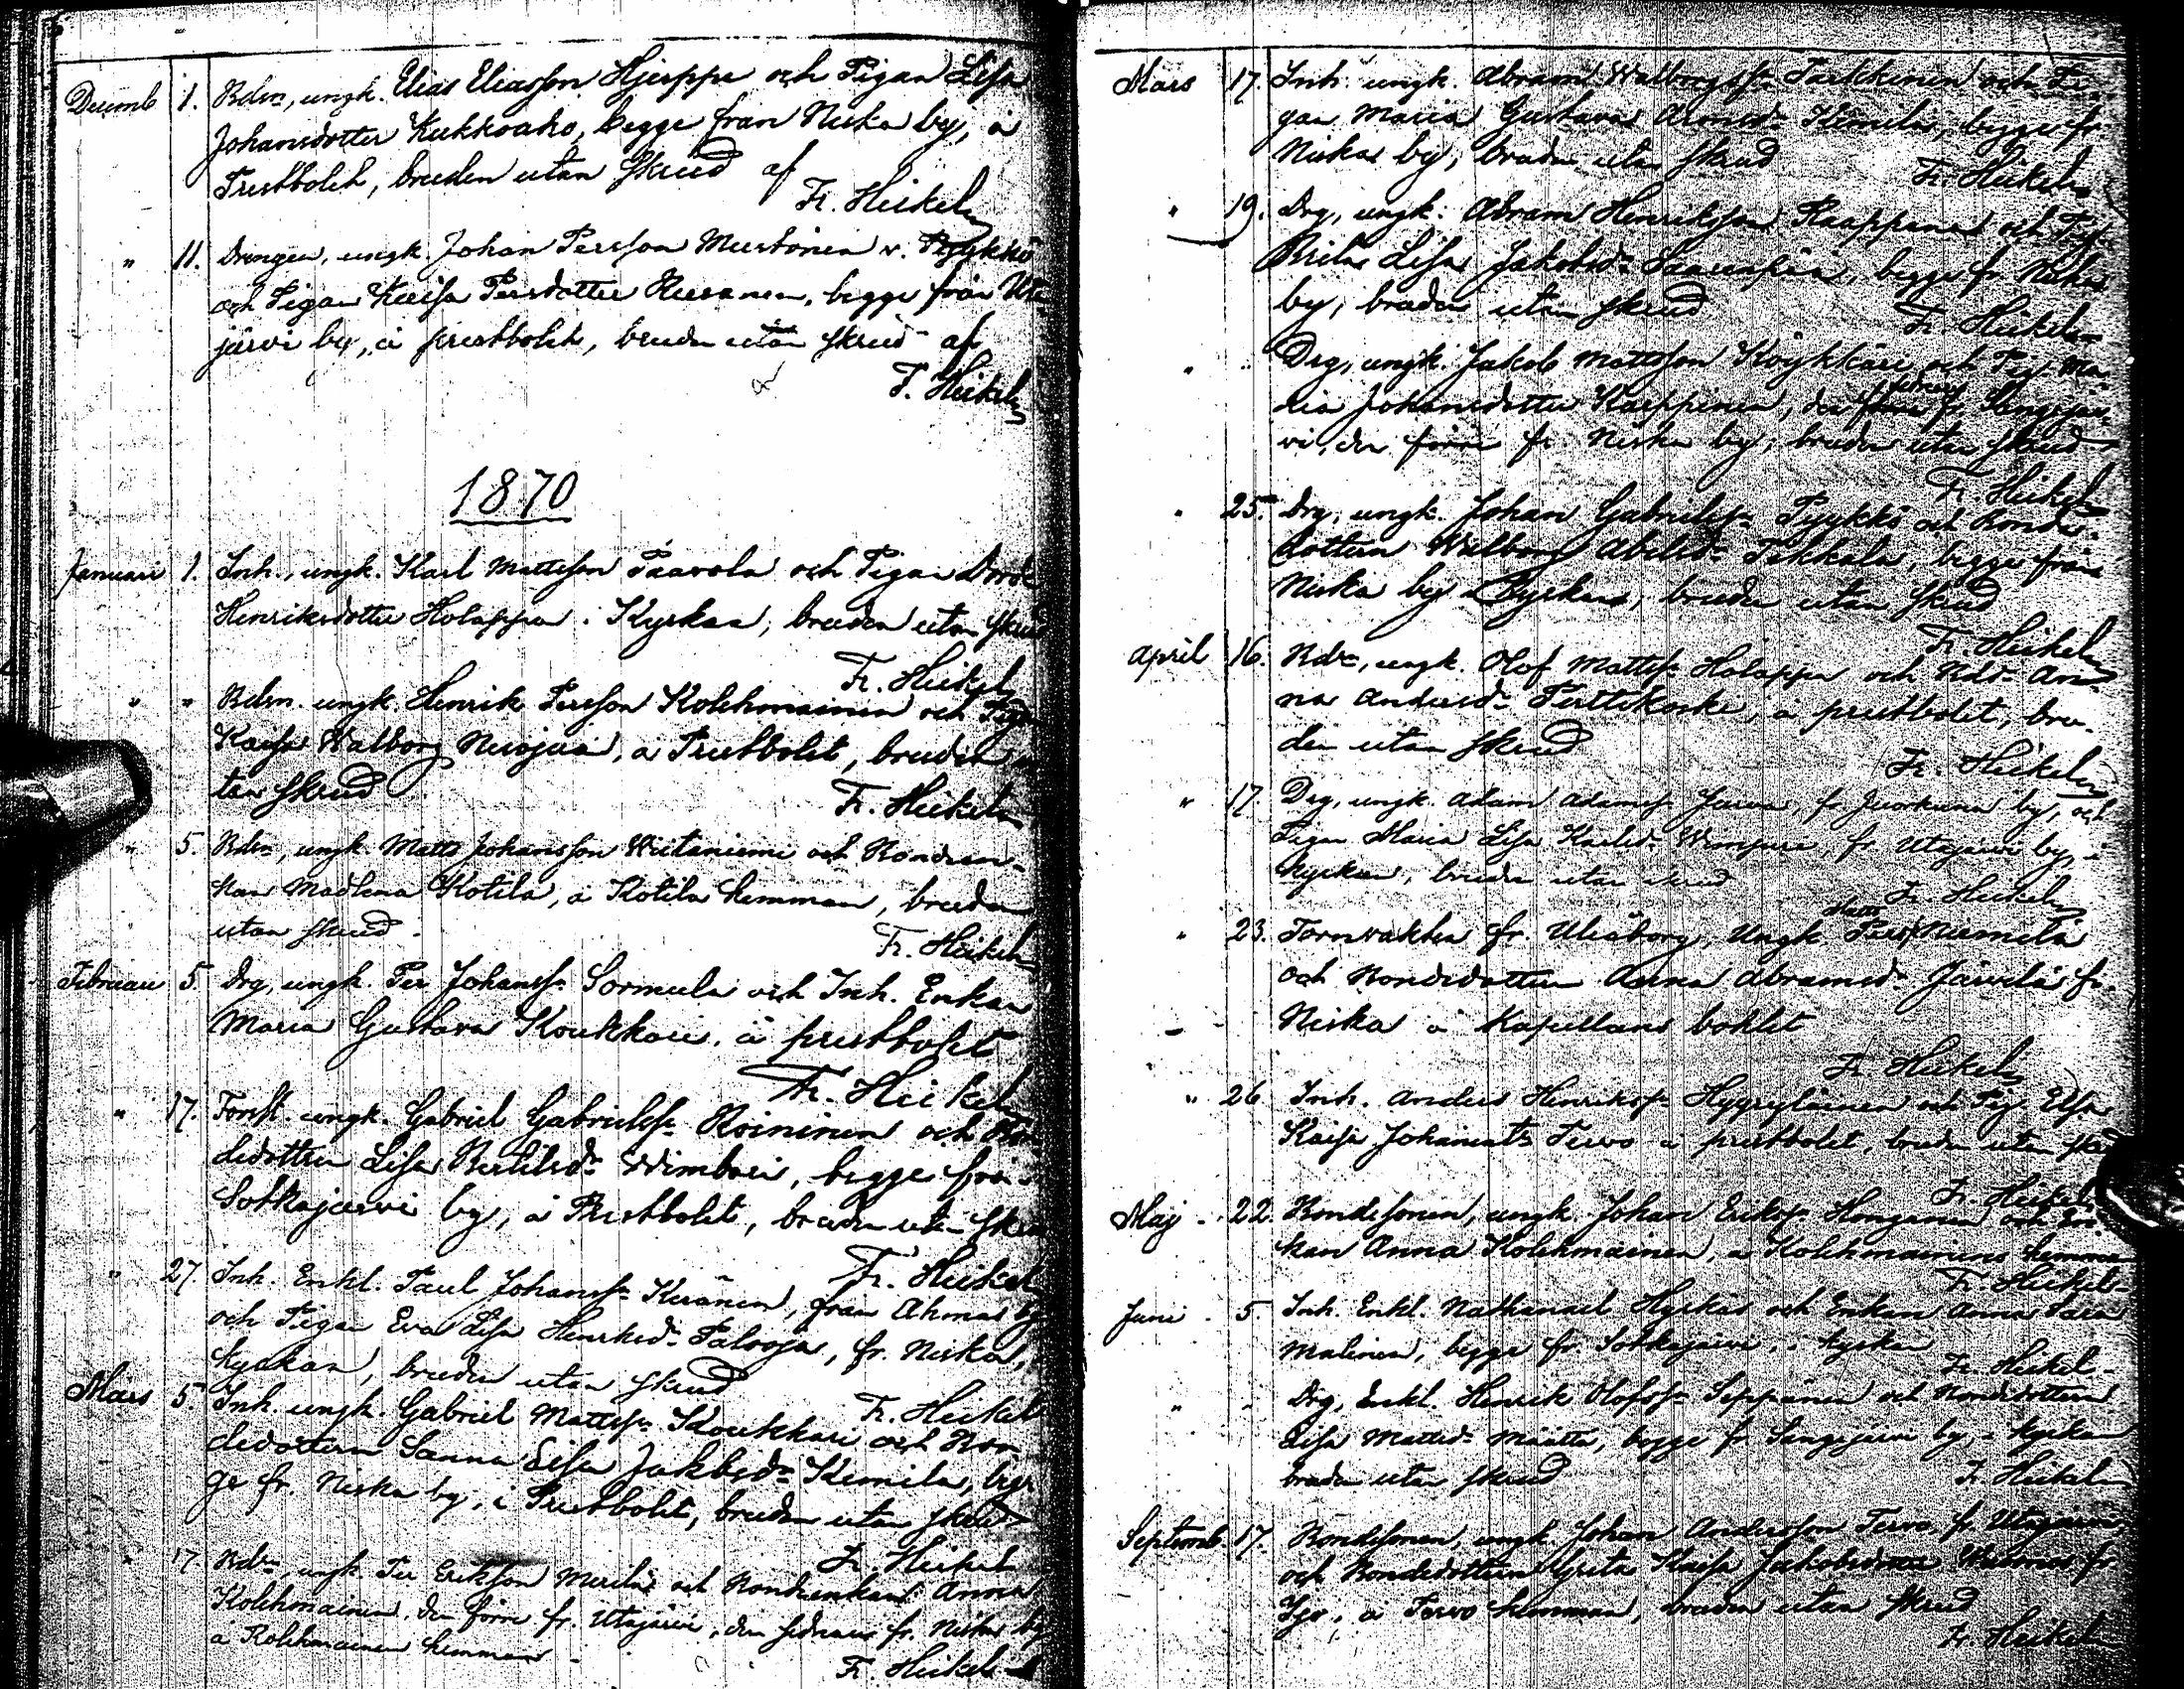 Decemb 1. Bdsn, ungk. Elias Eliasson Hjerppe och Pigan Lisa
Johansdotter Kukkoaho, begge från Niska by, å
Prestbolet, bruden utan skrud af
Fr. Heikel
" 11. Drengen, ungk. Johan Persson Mustonen v. Pyykkö
och Pigan Kaisa Persdotter Russanen, begge från Uta-
järvi by, å prestbolet, bruden utan skrud af
F. Heikel
1870
Januari 1. Inh., ungk. Karl Mattsson Paavola och Pigan
Henriksdotter Holappa i Kyrkan, bruden utan skrud
Fr. Heikel
" " Bdsn. ungk. Henrik Persson Kolehmainen och Pigan
Kaisa Walborg Nuojua, å Prestbolet, bruden u
tan skrud
Fr. Heikel
" 5. Bdsn, ungk. Matts Johansson Wiitaniemi och Bondeen-
kan Madlena Kotila, å Kotila hemman, bruden
utan skrud.
Fr. Heikel
Februari 5. Drg, ungk. Per Johanss. Sormula och Inh. Enkan
Maria Gustava Koukkari, å prestbolet
Fr. Heikel
" 17. Torp. ungk. Gabriel Gabrielss. Roininen och Bon-
dedottren Lisa Bertilsd. Wimbari, begge från
Sotkajärvi by, å Prestbolet, bruden utan skrud
Fr. Heikel
" 27. Inh. Enkl. Paul Johanss. Keränen, från Ahmas by
och Pigan Eva Lisa Henriksd. Palooja, fr. Niska, i
kyrkan, bruden utan skrud
Fr. Heikel
Mars 5. Inh. ungk. Gabriel Mattss. Koukkari och Bon-
dedottern Sanna Lisa Jakbsd. Kemila, beg-
ge fr. Niska by, i Prestbolet, bruden utan skrud
Fr. Heikel
" 17. Bdsn, ungk. Per Eriksson Merilä och Bondeenkan Anna
Kolehmainen, den förre fr. Utajärvi, den sednare fr. Niska by
å Kolehmainen hemman
Fr. Heikel
Mars 17. Inh. ungk. Abram Walborgss. Parkkinen och Pi-
gan Maria Gustava Kemilä, begge fr.
Niska by, bruden utan skrud
Fr. Heikel
" 19. Drg, ungk. Abram Henriksson Kaappana och Pig.
Brita Lisa Jakobsd. Saarenpää, begge fr. Niska
by, bruden utan skrud
Fr. Heikel
" " Drg, ungk. Jakob Mattsson Köykkäri och Pig. Ma-
ria Johansdotter Karppinen, den sednare fr. Sangijär-
vi, den förre fr. Niska by, bruden utan skrud
Fr. Heikel
" 25. Drg, ungk. Johan Gabrielss. Pyykkö och Bonde-
dottern Walborg Abelsd. Tikkala, begge från
Niska by i Kyrkan, bruden utan skrud
Fr. Heikel
April 16. Bdsn, ungk. Olof Mattss. Holappa och Bdsd. An-
na Andersd. Perttikoski, å prestbolet, bru-
den utan skrud
Fr. Heikel
" 17. Drg, ungk. Adam Adamss. Jurva, fr. Juorkuna by, och
Pigan Maria Lisa Karlsd. Wimpari, fr. Utajärvi by, i
kyrkan, bruden utan skrud
Fr. Heikel
" 23. Tornvakten fr. Uleåborg, Ungk. Matts Niemelä
och Bondedottren Anna Abramsd. Järvelä fr.
Niska å Kapellans bohlet
Fr. Heikel
" 26 Inh. Anders Henrikss. Hyyryläinen och Pig. Elsa
Kaisa Johansdtr Tervo å prestbolet, bruden utan skrud
Fr. Heikel
Maj 22. Bondesonen, ungk. Johan Erikss. Honganen och En-
kan Anna Kolehmainen, å Kolehmainens hemman
Fr. Heikel
Juni 5. Inh. Enkl. Nathanael Hyrkäs och Enkan Anna Sara
Malinen, begge fr. Sotkajärvi, i kyrkan
Fr. Heikel
" " Drg, Enkl. Henrik Olofss. Seppänen och Bondedottern
Lisa Mattsd. Määtta, begge fr. Sangijärvi by, i kyrkan
bruden utan skrud
Fr. Heikel
Septemb. 17. Bondesonen, ungk. Johan Andersson Tervo fr. Utajärvi,
och Bondedottern Greta Kaisa Jakobsdotter fr.
Ijo, å Tervo hemman, bruden utan skrud
Fr. Heikel